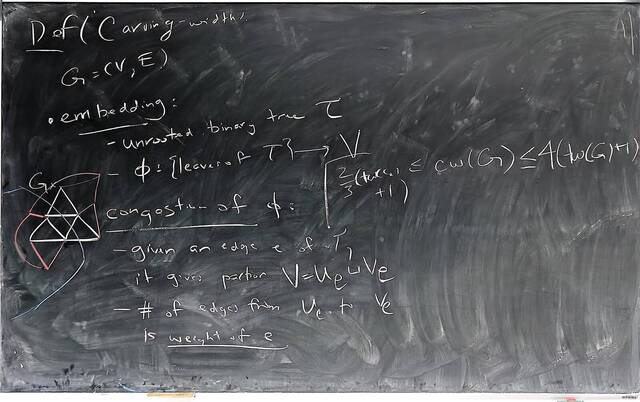 Def (Carving-width).
G = (V, E)
• embedding:
- unrooted binary tree T
- ϕ: {leaves of T} → V
2/3 (tw(G)+1) ≤ cw(G) ≤ 4(tw(G)+1)
G
congestion of ϕ:
- given an edge e of T,
it gives partion V = Ue ⊔ Ve
- # of edges from Ue to Ve
is weight of e